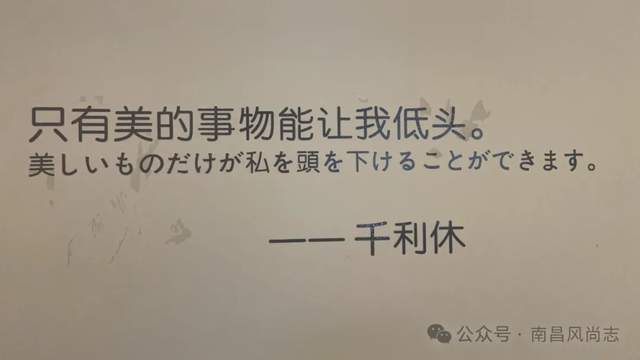 只有美的事物能让我低头。
美しいものだけが私を頭を下けることができます。
—— 千利休
公众号 · 南昌风尚志